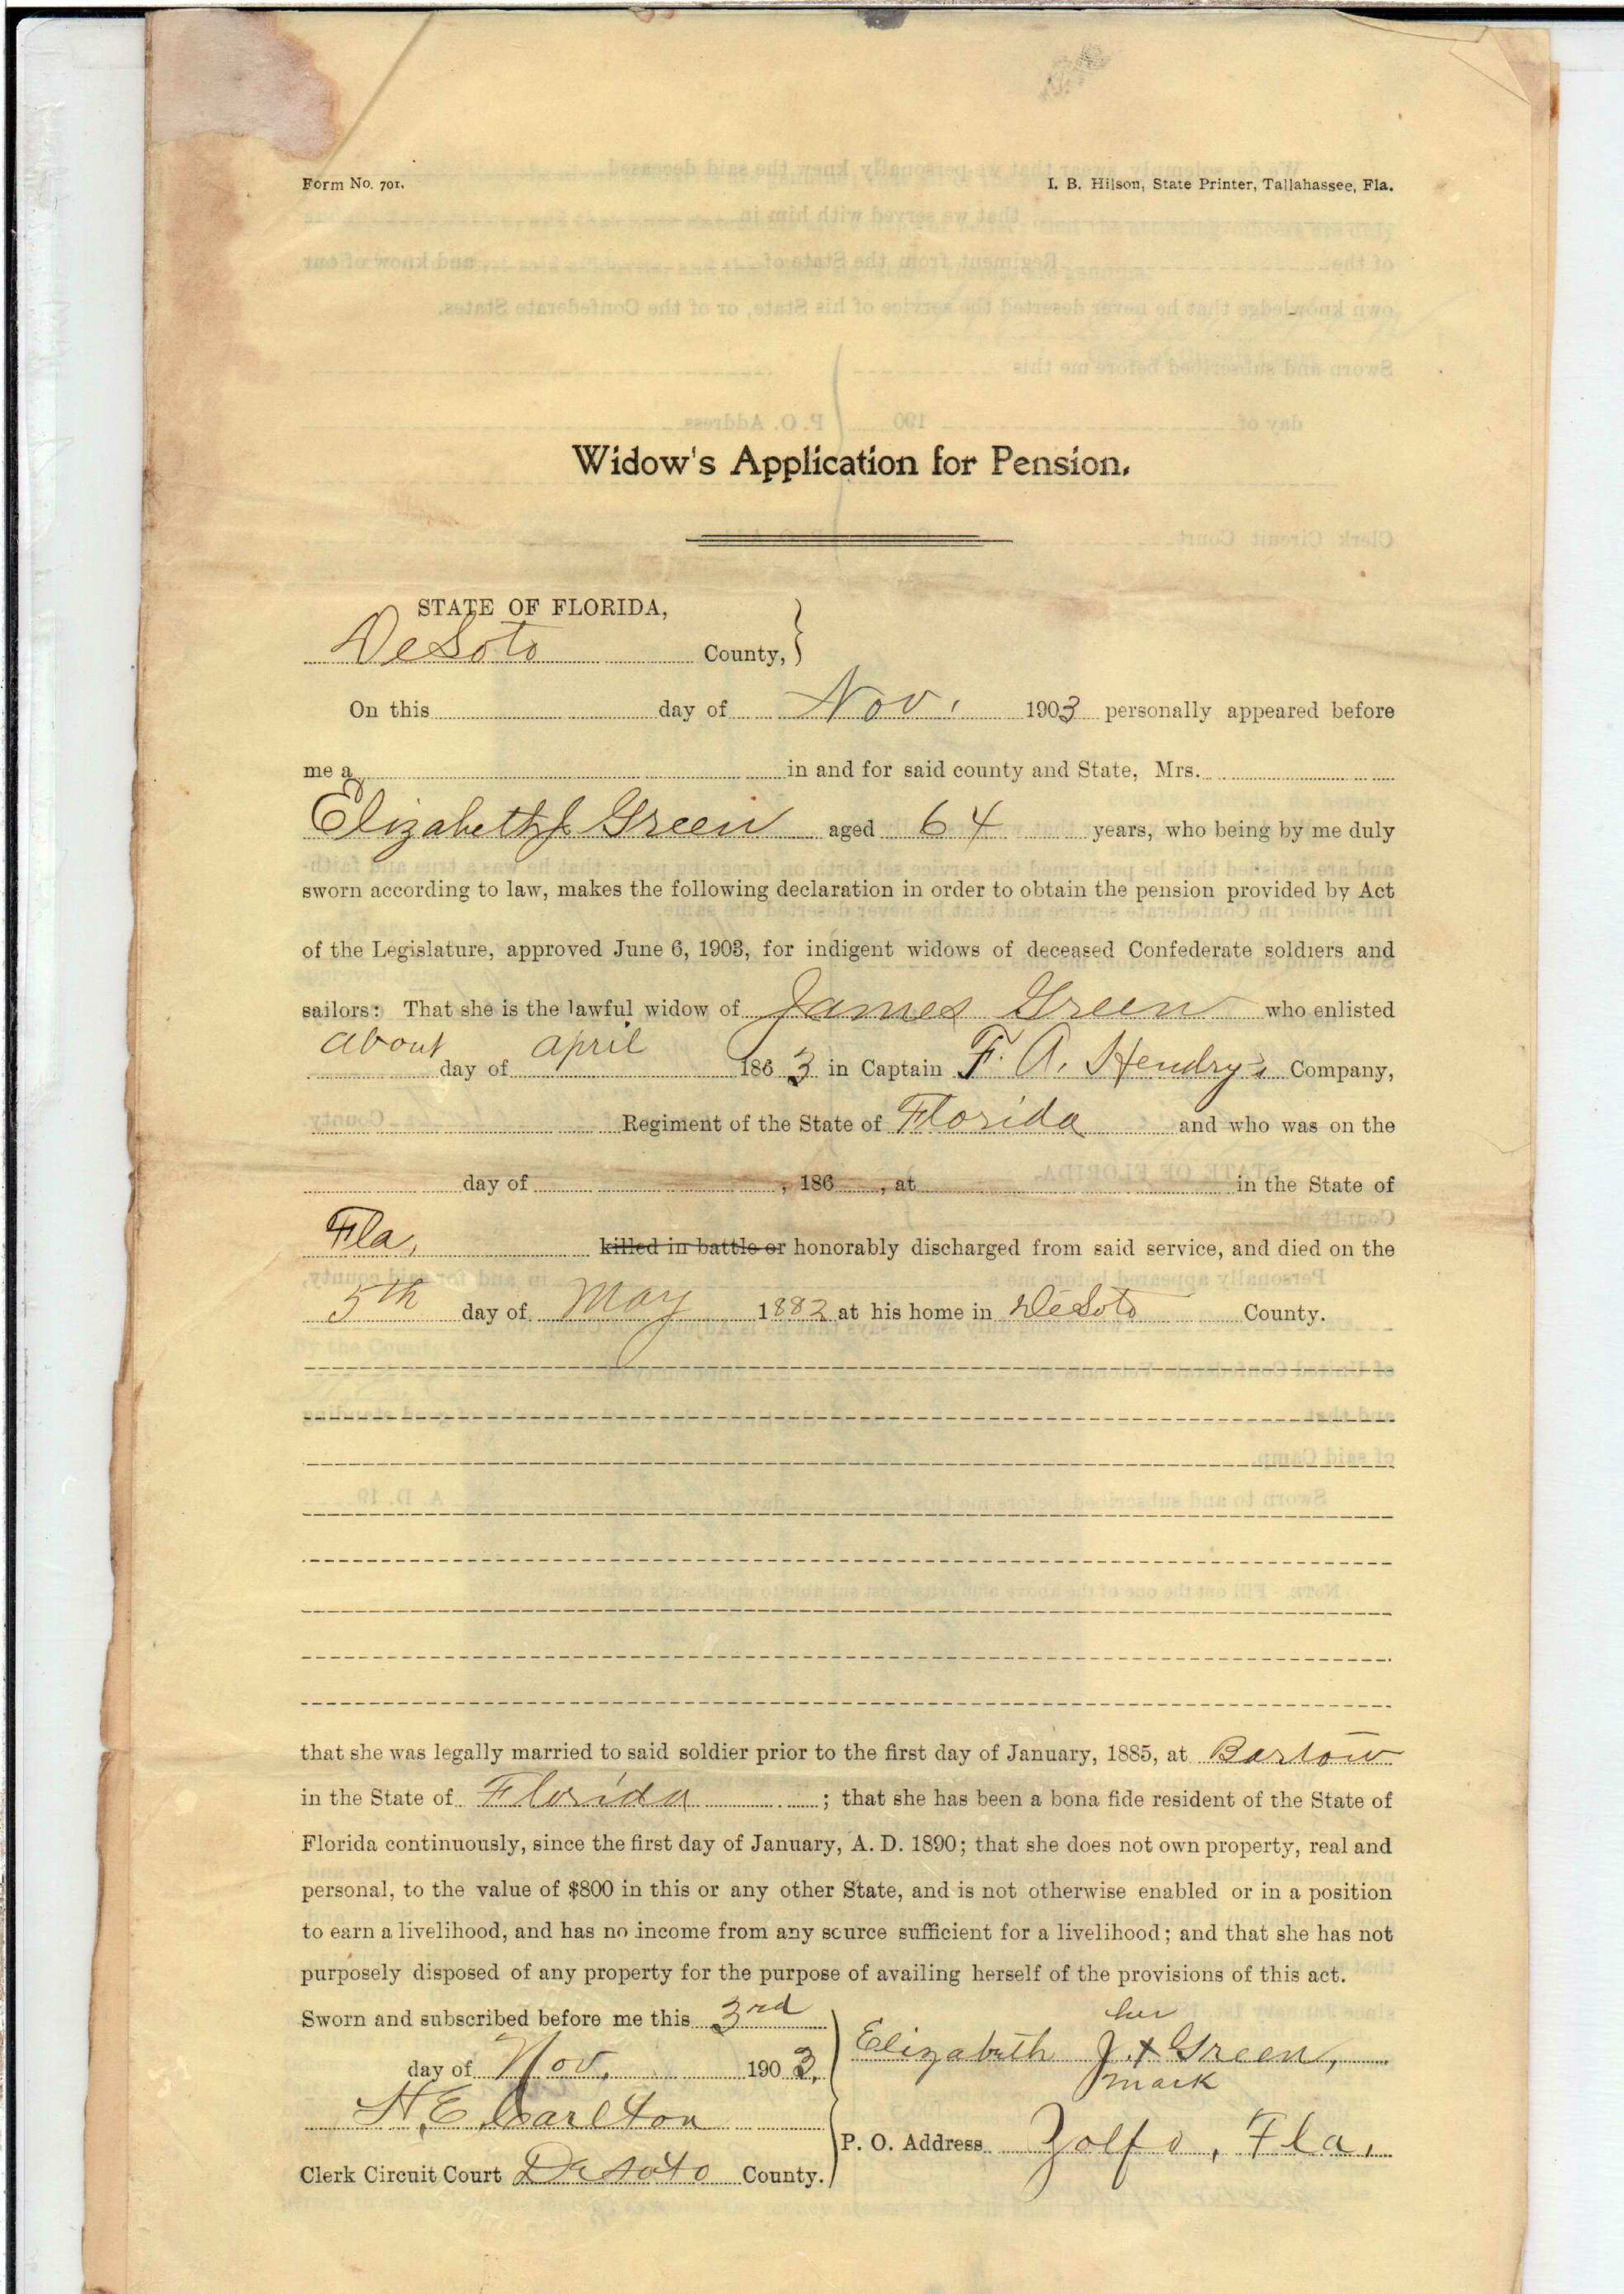 Form No. 701.
I. B. Hilson, State Printer, Tallahassee, Fla.
Widow's Application for Pension.
STATE OF FLORIDA,
DeSoto County,
On this day of Nov. 1903 personally appeared before
me a in and for said county and State, Mrs.
Elizabeth J. Green aged 64 years, who being by me duly
sworn according to law, makes the following declaration in order to obtain the pension provided by Act
of the Legislature, approved June 6, 1903, for indigent widows of deceased Confederate soldiers and
sailors: That she is the lawful widow of James Green who enlisted
about day of april 1863 in Captain F. A. Hendry's Company,
Regiment of the State of Florida and who was on the
day of , 186 , at in the State of
Fla, killed in battle or honorably discharged from said service, and died on the
5th day of May 1882 at his home in DeSoto County.
that she was legally married to said soldier prior to the first day of January, 1885, at Bartow
in the State of Florida ; that she has been a bona fide resident of the State of
Florida continuously, since the first day of January, A. D. 1890; that she does not own property, real and
personal, to the value of $800 in this or any other State, and is not otherwise enabled or in a position
to earn a livelihood, and has no income from any source sufficient for a livelihood; and that she has not
purposely disposed of any property for the purpose of availing herself of the provisions of this act.
Sworn and subscribed before me this 3rd
day of Nov. 1903,
H, E Carlton
Clerk Circuit Court DeSoto County.
her
Elizabeth J. x Green,
mark
P. O. Address Zolfo, Fla,